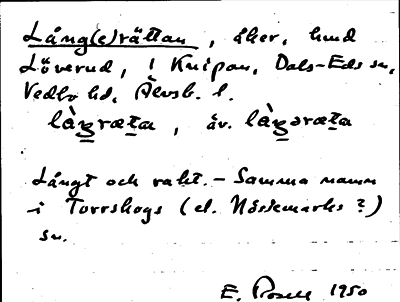 Lång(e)rättan, åker, hmd
Löverud, i Knipan, Dals-Eds sn,
Vedbo hd, Älvsb. l.
làŋræta, äv. làŋəræta
Långt och rakt. - Samma namn
i Torrskogs (el. Nössemarks?)
sn.
E. 1950